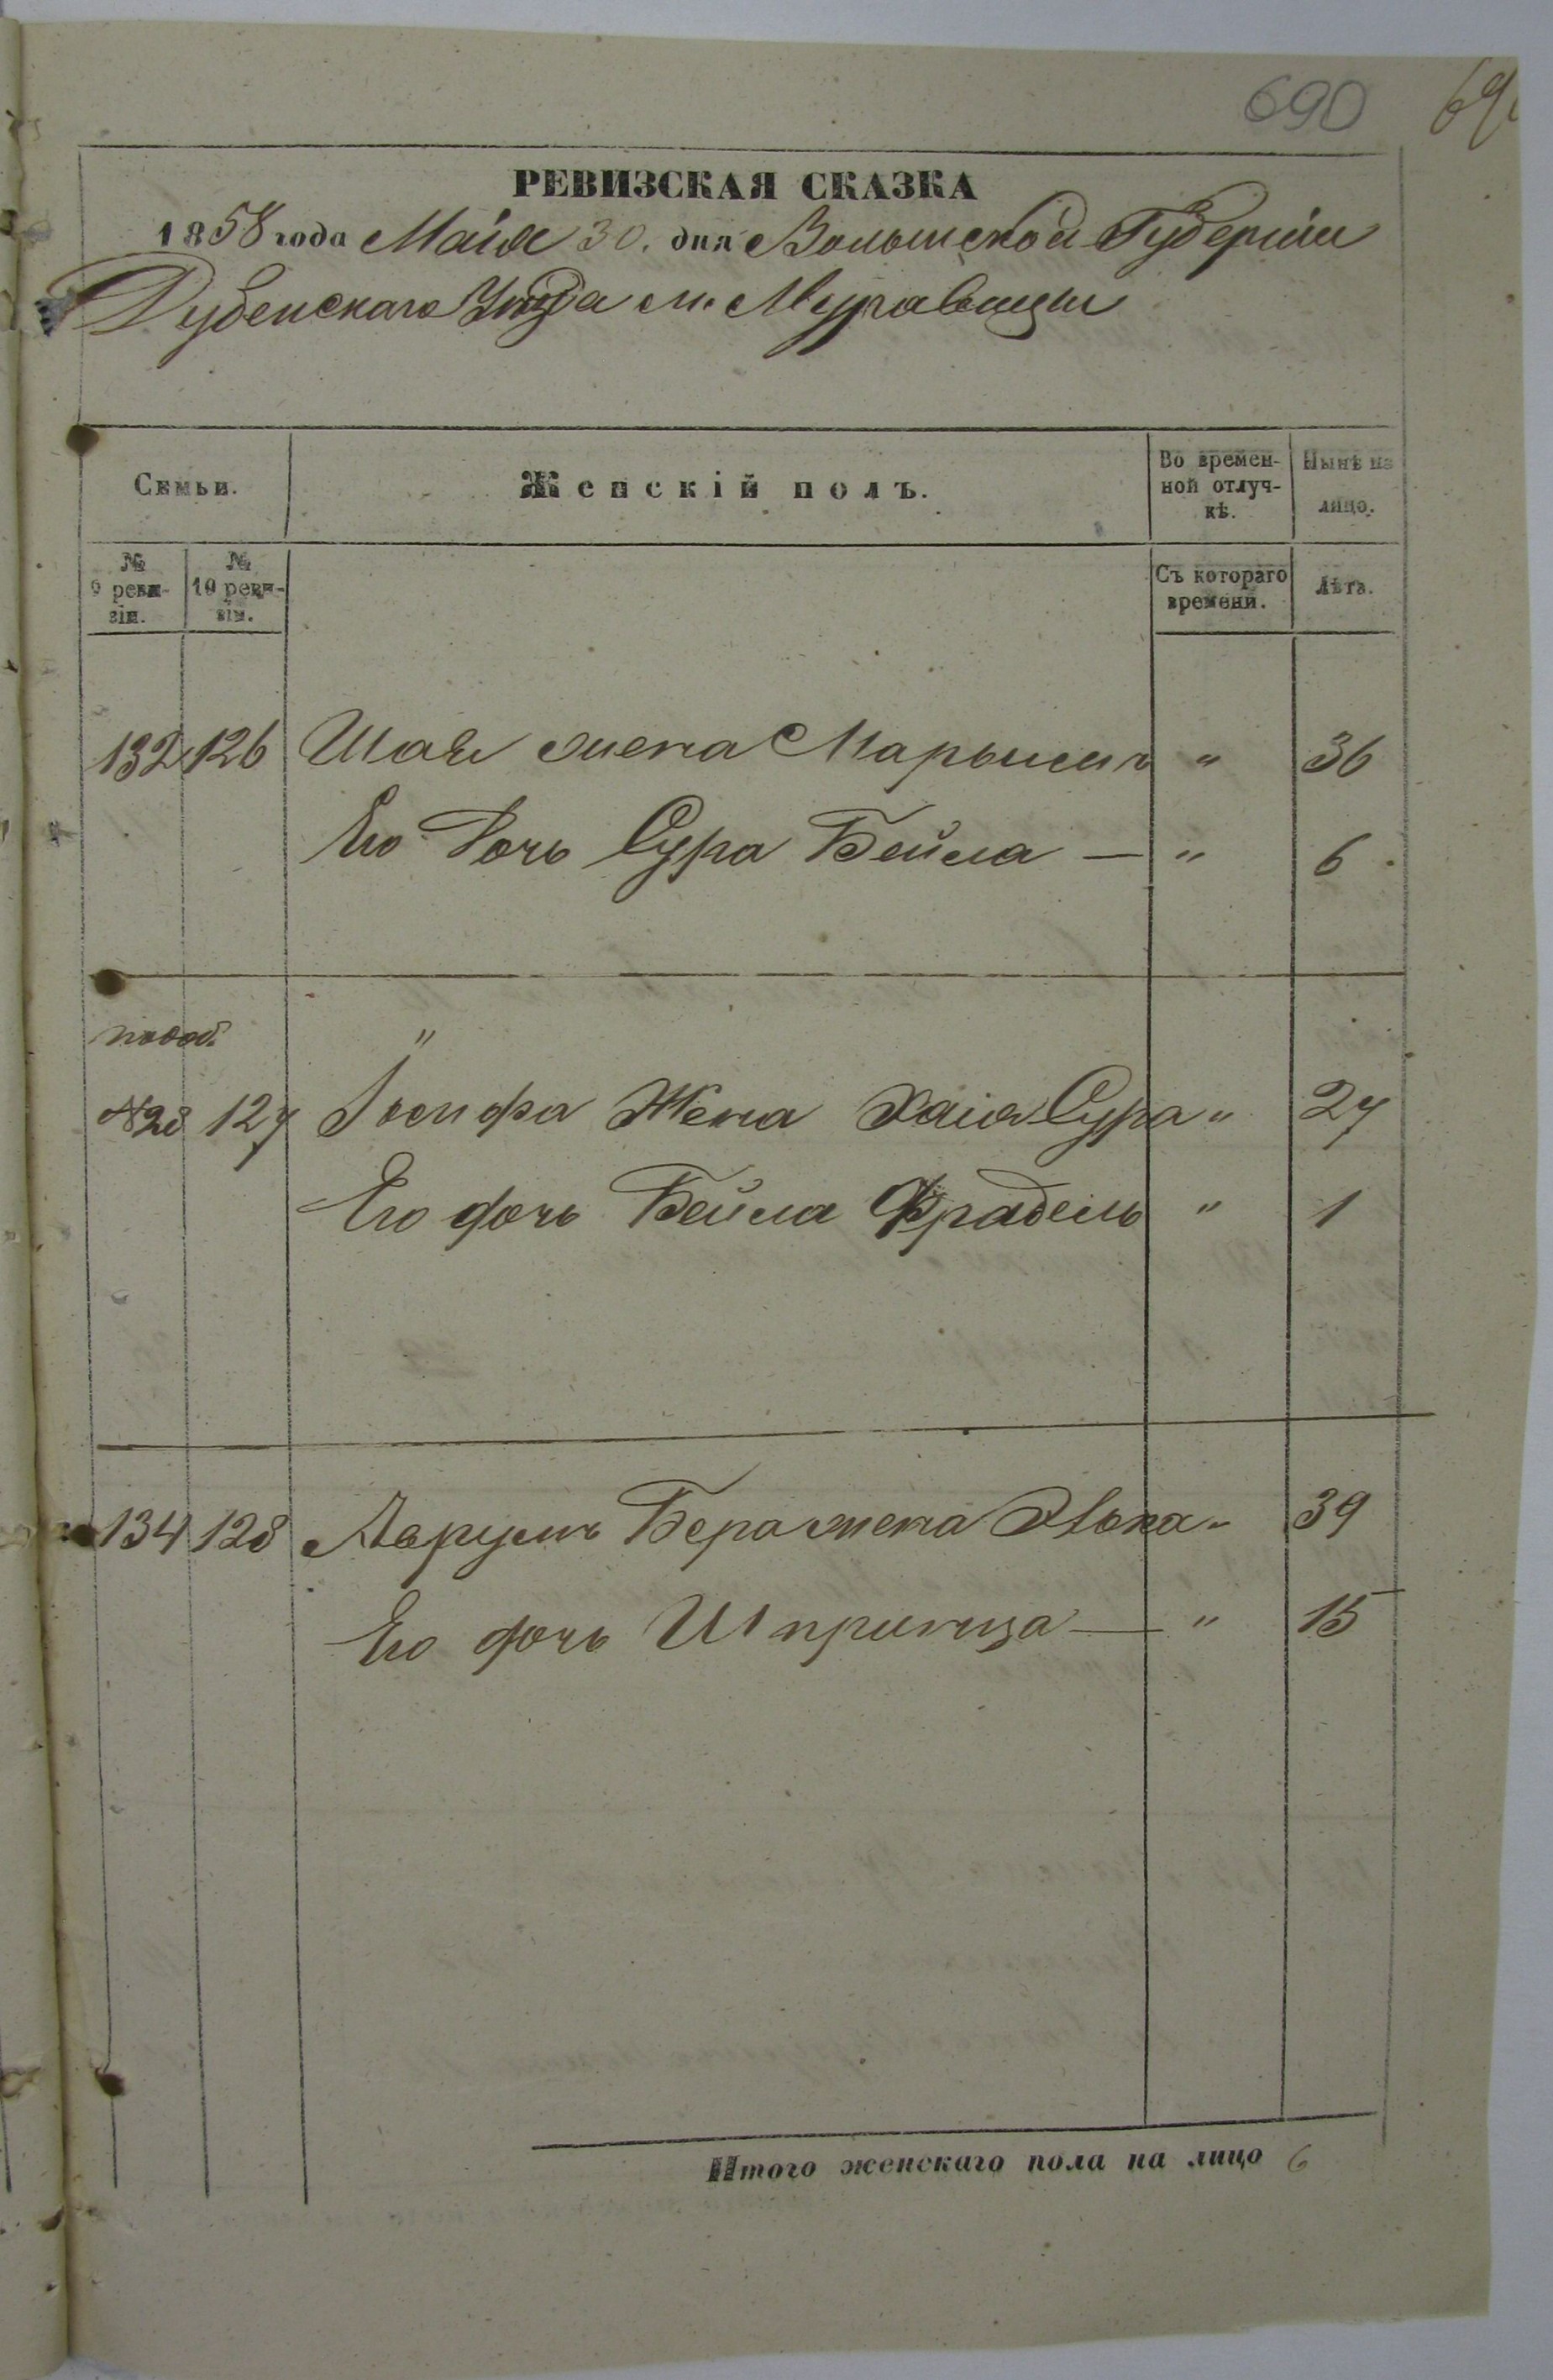 690
РЕВИЗСКАЯ СКАЗКА
1858 года Маія 30. дня Волынской Губерніи
Дубенскаго Уезда м. Муравицы
Семьи.
Женскій полъ.
Во времен-
ной отлуч-
кѣ.
Нынѣ на
лицо.
№
9 реви-
зіи.
№
10 реви-
зіи.
Съ котораго
времени.
Лѣта.
132 126 Шаи жена Марьямъ " 36
Его Дочь Сура Бейла — " 6
"
№28 127 Іосифа Жена Хаія Сура " 27
Его дочь Бейла Фрадель " 1
134 128 Аврумъ Бера жена 39
Его дочь Шпринца — " 15
Итого женскаго пола на лицо 6